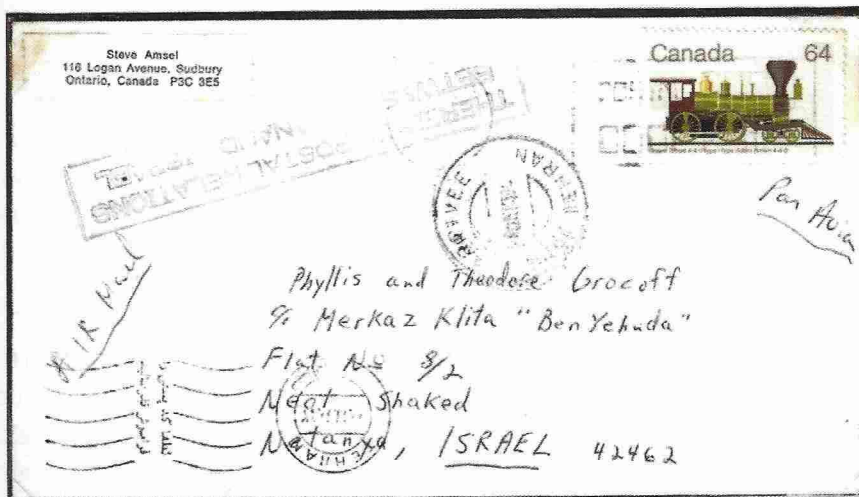 Steve Amsel
116 Logan Avenue, Sudbury
Ontario, Canada P3C 3E5
Canada 64
POSTAL RELATIONS
ARRIVEE
TEHRAN
Par Avion
AIR Mail
Phyllis and Theodore Grocoff
c/o Merkaz Klita "Ben Yehuda"
Flat No 8/2
Neot Shaked
Natanya, ISRAEL 42462
TEHRAN